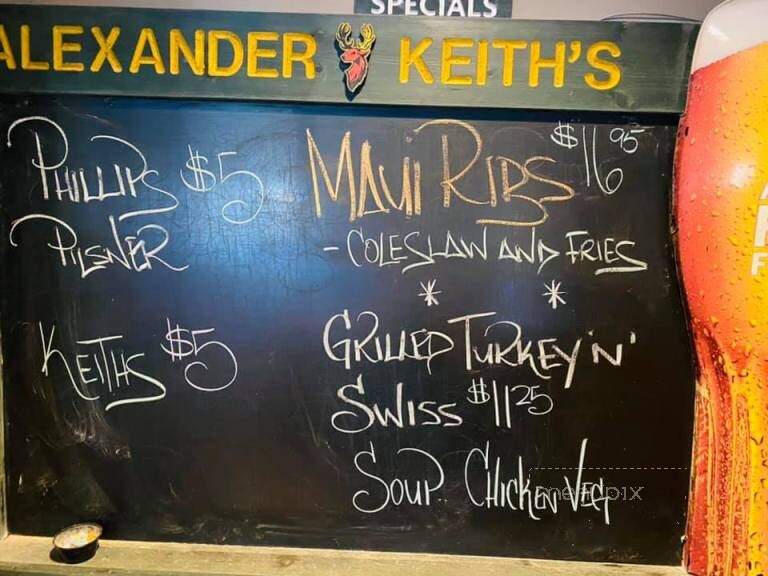 SPECIALS
ALEXANDER KEITH'S
PHILLIPS $5
PILSNER
KEITHS $5
MAUI RIBS $16 95
- COLESLAW AND FRIES
* *
GRILLED TURKEY 'N'
SWISS $11 25
SOUP CHICKEN VEG